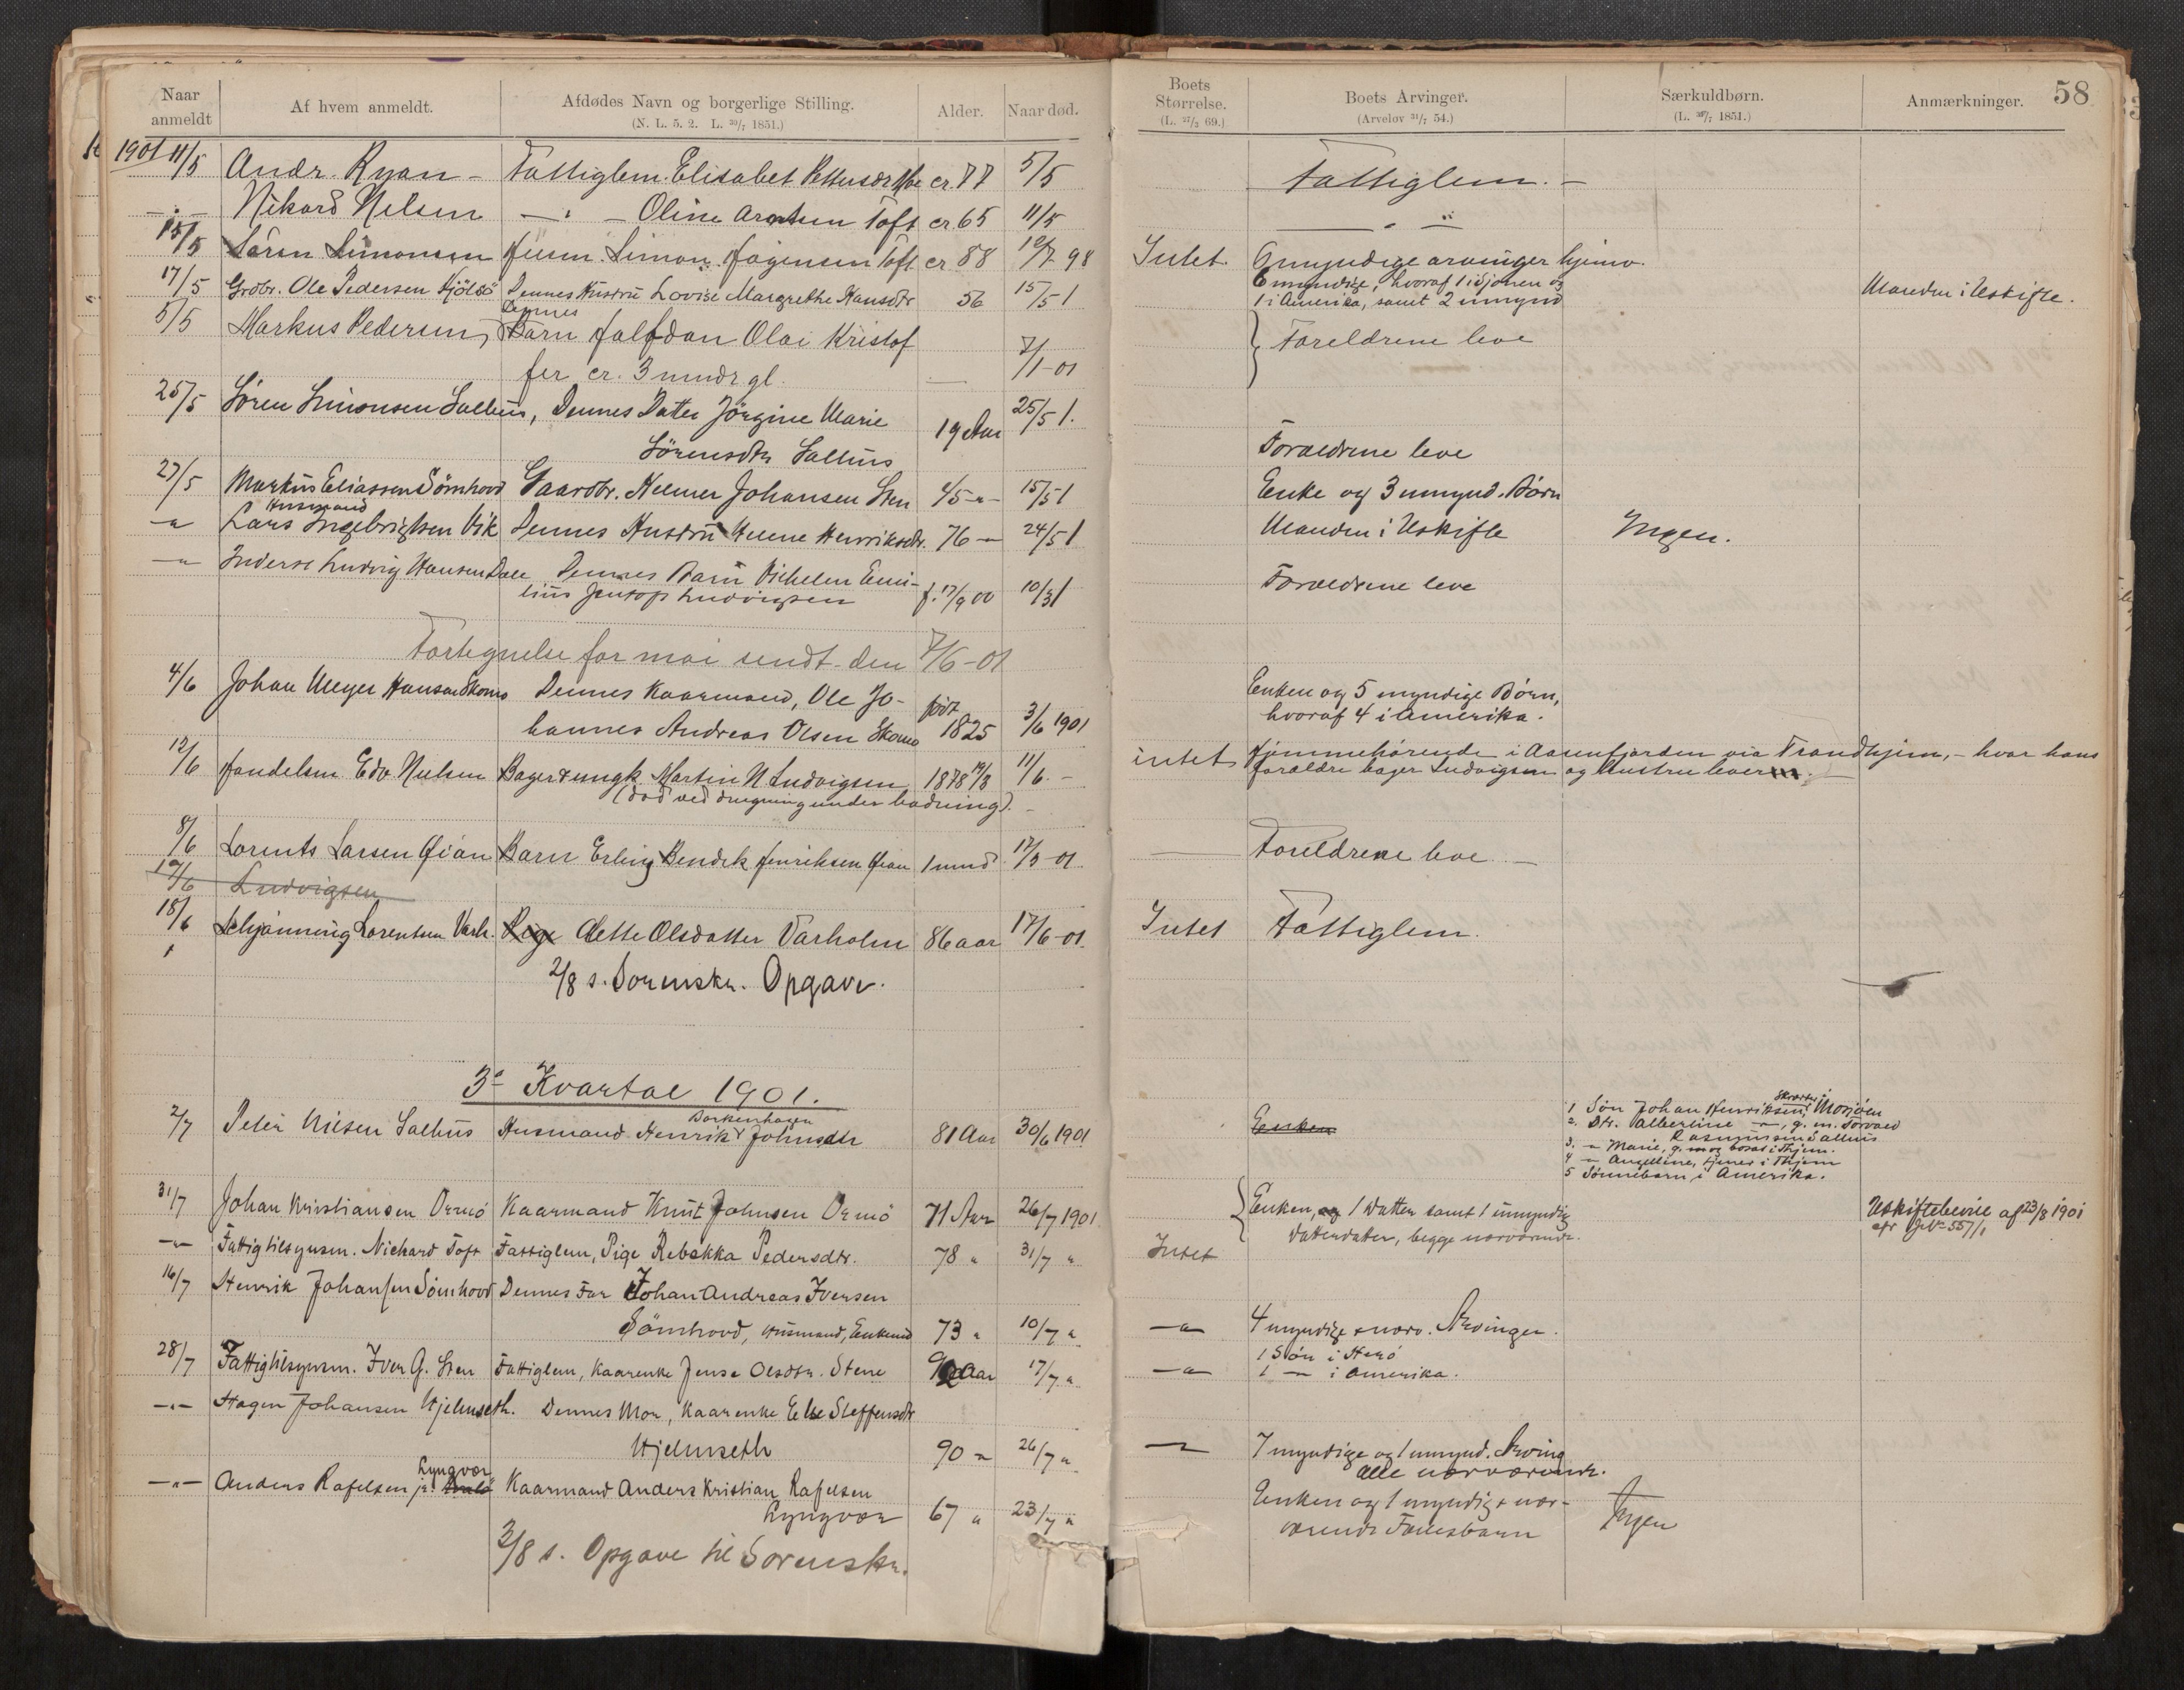 Naar anmeldt
Af hvem anmeldt.
Afdødes Navn og borgerlige Stilling.
(N. L. 5. 2. L. 30/7 1851.)
Alder.
Naar død.
Boets Størrelse.
(L. 27/3 69.)
Boets Arvinger.
(Arvelov 31/7 54.)
Særkuldbørn.
(L. 30/7 1851.)
Anmærkninger.
58
1901 11/5 Andr. Ryan - Fattiglem. Elisabet cr. 77 5/5 Fattiglem. -
- " - Rikard Nelsen - " - Oline Arntsen Toft cr. 65 11/5 - " -
15/5 Søren Simonsen Husm. Simon Toft cr 88 98 Intet. 6 myndige arvinger hjemv.
17/5 Grdbr. Ole Pedersen Dennes Hustru Lovise Margrethe Hansdtr 56 15/5 1 6 myndige, hvoraf 1 i Sjonen og Manden i Uskifte.
1 i Amerika, samt 2 umynd
5/5 Markus Pedersen, Dennes Barn Halfdan Olai Kristof
fer cr. 3 mndr gl. 7/1-01 Foreldrene leve
25/5 Søren Simonsen Salhus, Dennes Datter Jørgine Marie
Sørensdtr Salhus 19 Aar 25/5 1. Forældrene leve
27/5 Markus Eliassen Sömhovd Gaardbr. Helmer Johansen Sten 45 -"- 15/5 1 Enke og 3 umynd. Børn
-"- Husmand Lars Ingebrigtsen Vik Dennes Hustru Helene Henriksdtr. 76 - 24/5 1 Manden i Uskifte Ingen.
-"- Inderst Ludvig Hansen Dale Dennes Barn Vilhelm Emi-
lius Jentoft Ludvigsen f. 17/9 00 10/3 1 Forældrene leve
Fortegnelse for mai sendt den 7/6-01
4/6 Johan Meyer Hansen Skomo Dennes Kaarmand, Ole Jo-
hannes Andreas Olsen Skomo født 1825 3/6 1901 Enken og 5 myndige Børn,
hvoraf 4 i Amerika.
12/6 Handelsm. Edv. Nielsen Bager & ungk. Martin N. Ludvigsen 1878 11/6. - intet Hjemmehørende i Aasenfjorden via Trondhjem, - hvor hans
(død ved drugning under badning). - forældre bager Ludvigsen og Hustru lever.
8/6 Lorents Larsen Øian Barn Erling Bendik Henriksen Øian 1 mnd 17/3-01 — Foreldrene leve -
17/6 Ludvigsen
18/6 Schjänning Lorentsen Varh. Pige Alette Olsdatter Varholm 86 aar 17/6-01. Intet Fattiglem.
2/8 s. Sorenskr. Opgave.
3e Kvartal 1901.
2/7 Peter Nilsen Salhus Husmand Henrik Johnsen 81 Aar 30/6 1901 Enken
1 Søn Johan Henriksen, Mosjøen
2. Dtr. Alberline -"-, g. m. Torvald
Rasmussen Salhus
3. -"- Marie, g. og bosat i Thjem.
4 -"- Angelline, tjener i Thjem
5 Sønnebarn i Amerika.
31/7 Johan Kristiansen Ormö Kaarmand Knut Johnsen Ormö 71 Aar 26/7 1901 Enken, og 1 datter samt 1 umyndig
datterdatter, begge nærværende. Uskiftebevil. af 23/8 1901
-"- Fattigtilsynsm. Richard Toft Fattiglem, Pige Rebekka Pedersdtr. 78 " 31/7 " Intet
16/7 Henrik Johansen Sömhovd Dennes Far Johan Andreas Iversen
Sömhovd, Husmand, Enkemd 73 " 10/7 " -"- 4 myndige nærv. Arvinger.
28/7 Fattigtilsynsm. Iver G. Sten Fattiglem, Kaarenke Jense Olsdtr. Stene 92 Aar 17/7 " -"- 1 Søn i Herö
1 -"- i Amerika.
-"- Hagen Johansen Hjelmseth. Dennes Mor, Kaarenke Else Steffensdtr
Hjelmseth 90 " 26/7 " -"- 7 myndige og 1 umynd. Arving
alle nærværende.
-"- Anders Rafelsen jr. Lyngvær Kaarmand Anders Kristian Rafelsen
Lyngvær 67 " 23/7 " Enken og 1 myndig nær-
værende Fællesbarn Ingen
3/8 s. Opgave til Sorenskr.